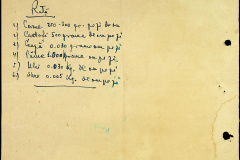 Rația
1) Carne 250-300 gr. pe zi de om
2) Cartofi 500 grame de om pe zi
3) Ceapă 0.030 grame om pe zi
4) Pâine 1.000 grame om pe zi
5) Ulei 0.030 Kg. de om pe zi
6) Sare 0.005 Kg. de om pe zi